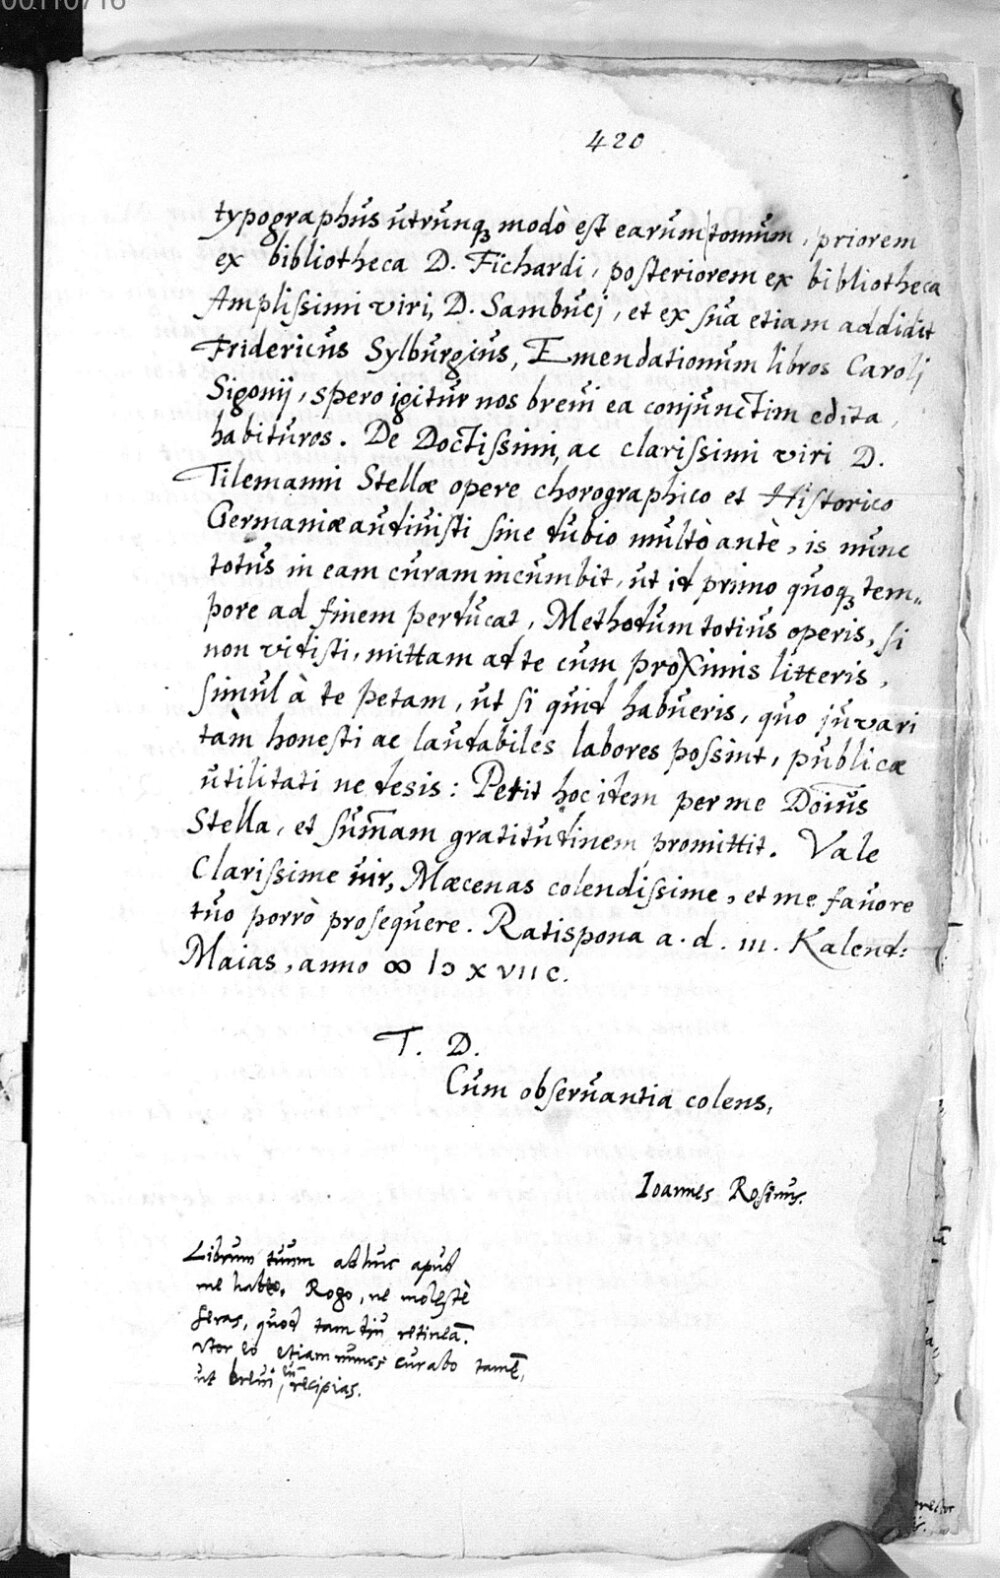 00110716
420
typographus utrunq; modò est earum tomum, priorem
ex bibliotheca D. Fichardi, posteriorem ex bibliotheca
Amplissimi viri, D. Sambucj, et ex sua etiam addidit
Fridericus Sylburgius, Emendationum libros Carolj
Sigonij, spero igitur nos breui ea conjunctim edita,
habituros. De Doctissimi, ac clarissimi viri D.
Tilemanni Stellæ opere chorographico et Historico
Germaniæ audiuisti sine dubio multò antè, is nunc
totus in eam curam incumbit, ut id primo quoq; tem„
pore ad finem perducat, Methodum totius operis, si
non vidisti, mittam ad te cum proximis litteris,
simul à te petam, ut si quid habueris, quo juvari
tàm honesti ac laudabiles labores possint, publicæ
utilitati ne desis: Petit hoc idem per me Dom̄us
Stella, et sum̄am gratitudinem promittit. Vale
Clarissime uir, Mæcenas colendissime, et me fauore
tuo porrò prosequere. Ratispona a. d. III. Kalend:
Maias, anno ∞ IↃ XVIIC.
T. D.
Cum obseruantia colens,
Ioannes Rosinus.
Librum tuum adhuc apud
me habeo. Rogo, ne molestè
feras, quod tam diu retineā.
Vtor eo etiam nunc: curabo tamē,
ut breui eū recipias.